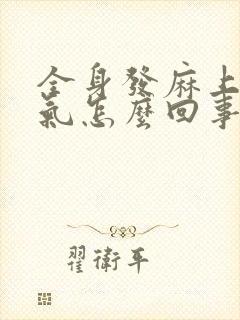 全身發麻上
氣怎麼回事
翟衛平